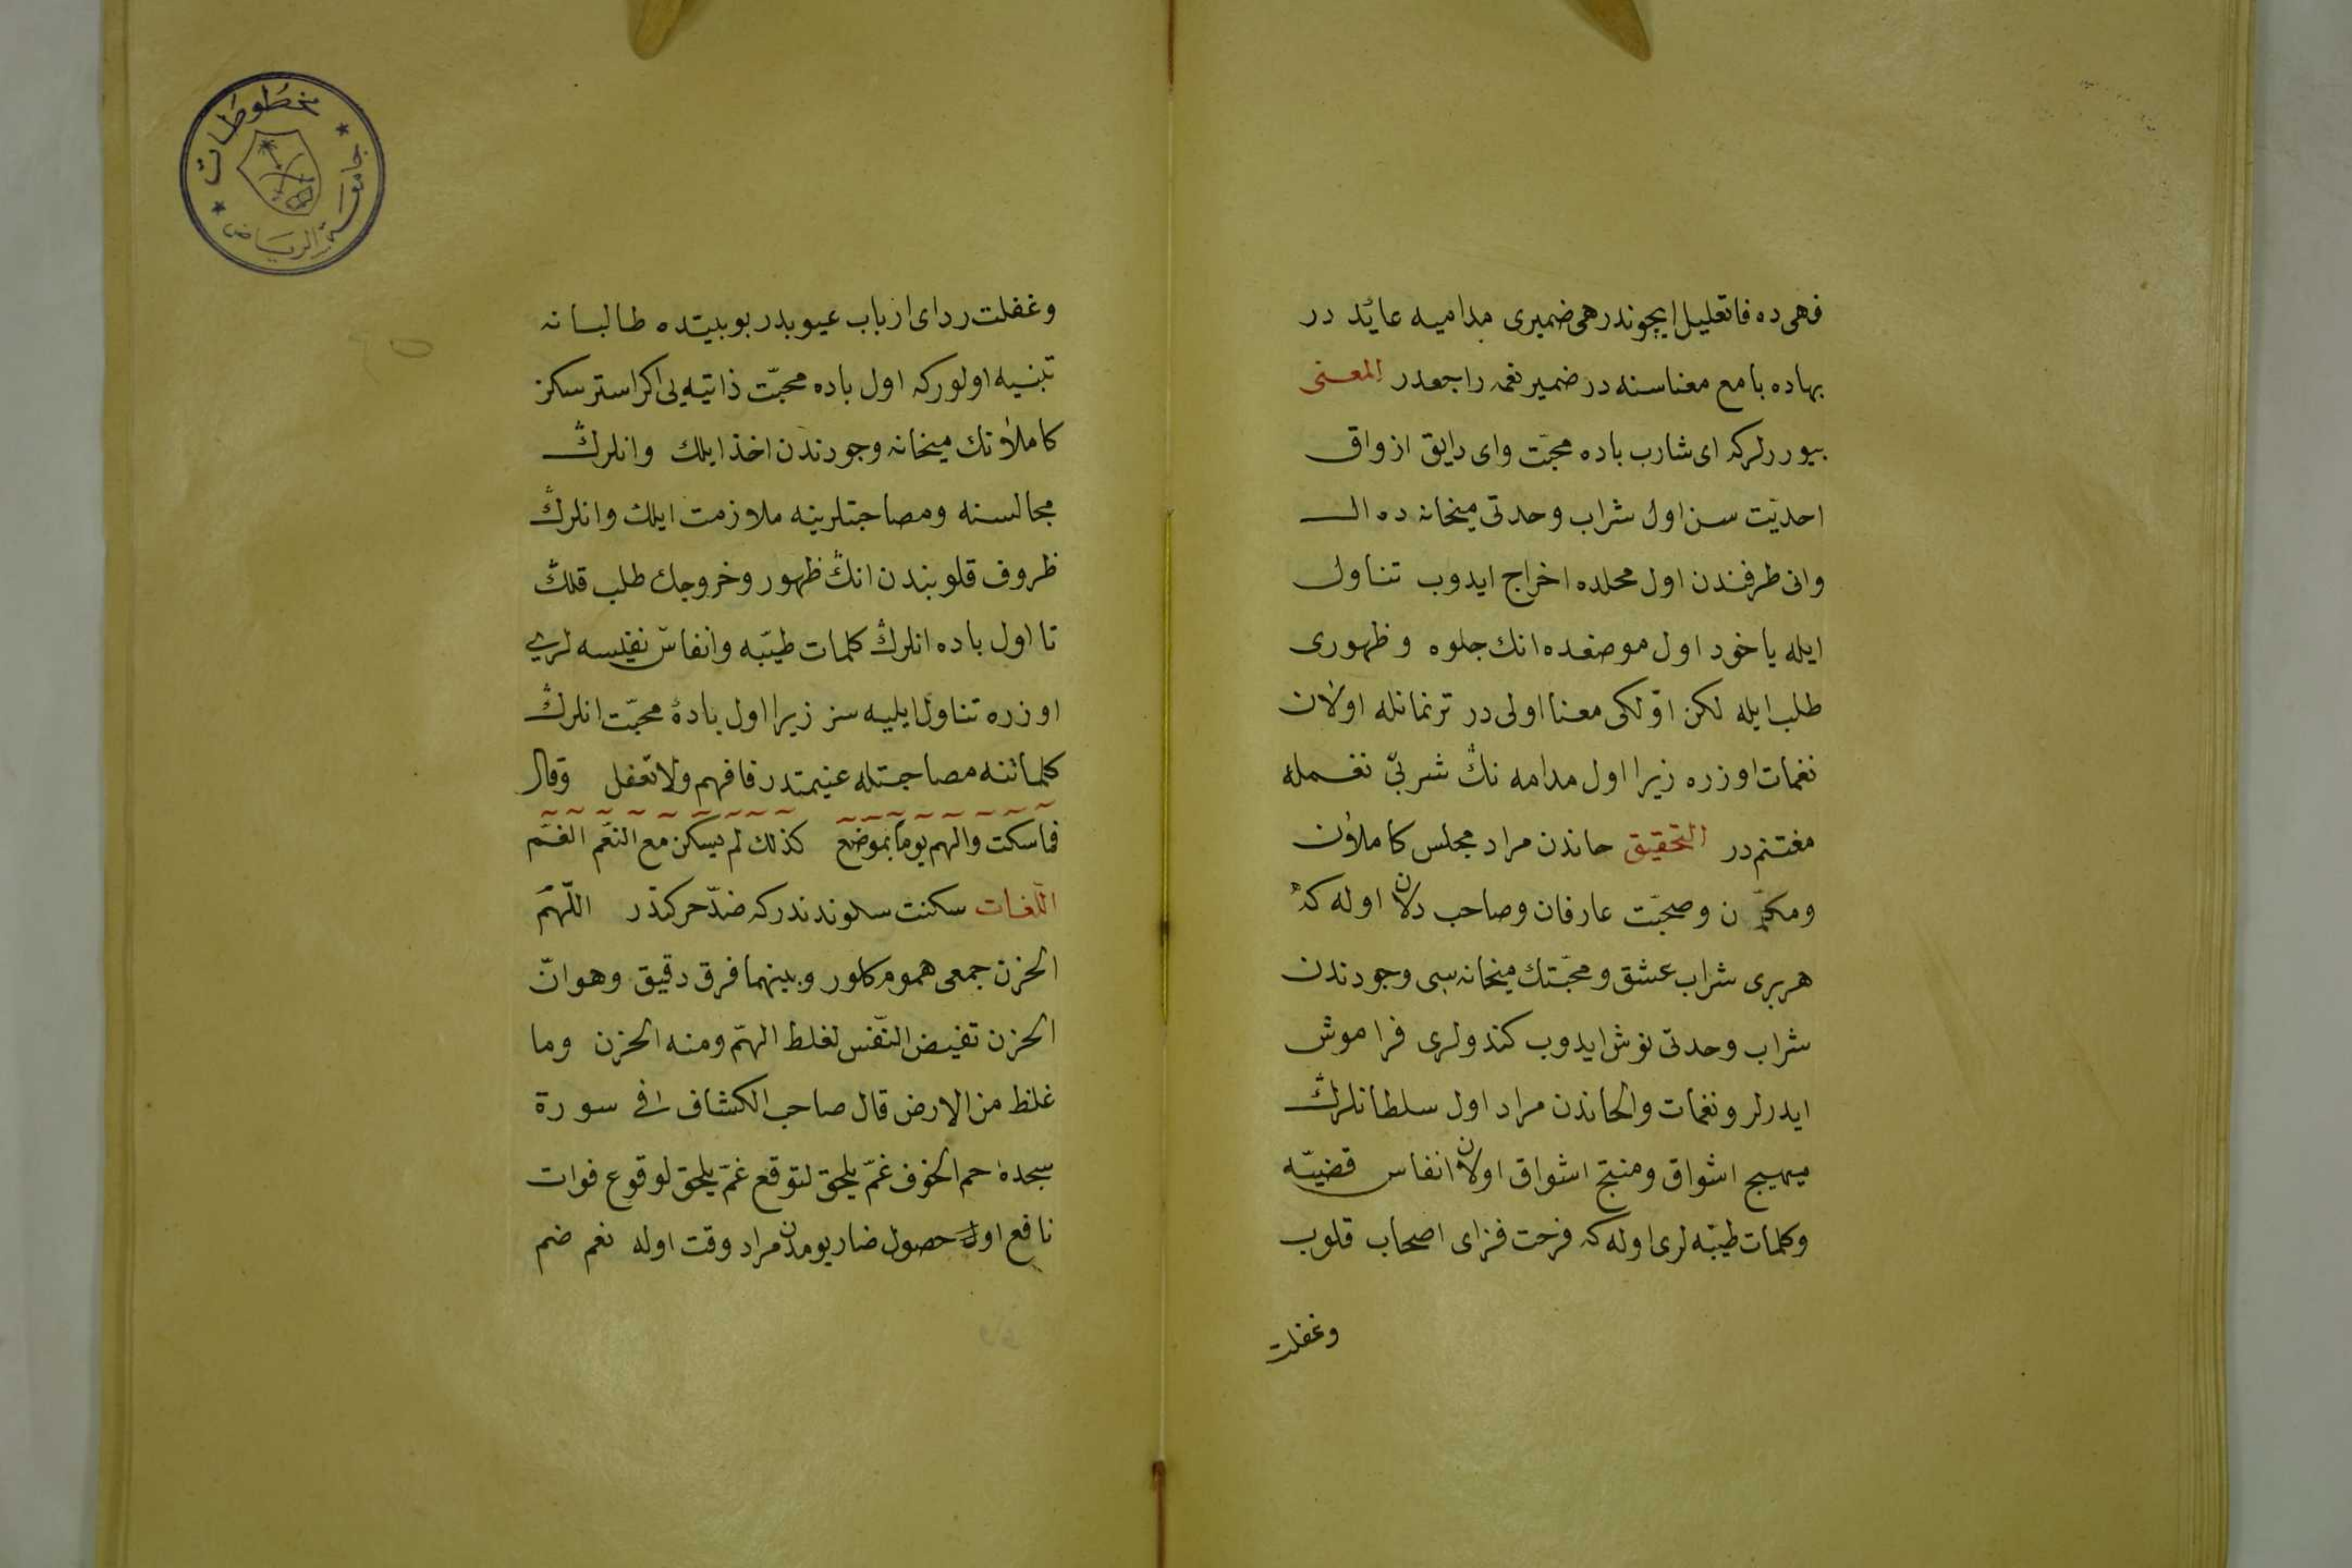 فهی ده فا تعلیل ایچوندر هی ضمیری مدامیه عائد در
بهاده با مع معناسنه در ضمیر نغمه راجعدر المعنی
بیوررلرکه ای شارب باده محبّت وای دایق اذواق
احدیّت سن اول شراب وحدتی میخانه ده ال
وانی ظرفندن اول محلده اخراج ایدوب تناول
ایله یاخود اول موضعده انك جلوه و ظهوری
طلب ایله لکن اوّلکی معنا اولی در ترنماتله اولان
نغمات اوزره زیرا اول مدامه نڭ شربی نغمله
مغتنم در التحقیق حاندن مراد مجلس کاملان
ومکمّلان وصحبت عارفان وصاحب دلان اوله که
هر بری شراب عشق و محبّتك میخانه سی وجودندن
شراب وحدتی نوش ایدوب کندولری فراموش
ایدرلر و نغمات والحاندن مراد اول سلطانلرڭ
مهیج اشواق ومنتج اشواق اولان انفاس قضیّه
وکلمات طیّبه لری اوله که فرحت فزای اصحاب قلوب
وغفلت
وغفلت ردای ارباب عیوبدر بو بیتده طالبانه
تنبیه اولور که اول باده محبّت ذاتیه یی اکر استرسکز
کاملانك میخانه وجودندن اخذ ایلك وانلرڭ
مجالسنه ومصاحبتلرینه ملازمت ایلك وانلرڭ
ظروف قلوبندن انڭ ظهور وخروجك طلب قلڭ
تا اول باده انلرڭ کلمات طیّبه وانفاس نفیسه لری
اوزره تناول ایلیه سز زیرا اول بادهٔ محبّت انلرڭ
کلماتنه مصاحبتله غنیمتدر فافهم ولا تغفل وقال
فما سکنت والهم یوما بموضع کذلك لم یسکن مع النغم الغم
اللّغات سکنت سکوندندرکه ضدّ حرکتدر اللّهمّ
الحزن جمعی هموم کلور وبینهما فرق دقیق وهو انّ
الحزن تفیض النّفس لغلظ الهمّ ومنه الحزن وما
غلظ من الارض قال صاحب الکشاف فی سورة
سجدهٔ حم الخوف غمّ یلحق لتوقع غمّ یلحق لوقوع فوات
نافع او حصول ضار یومدن مراد وقت اوله نغم ضم
مخطوطات
جامعة الرياض